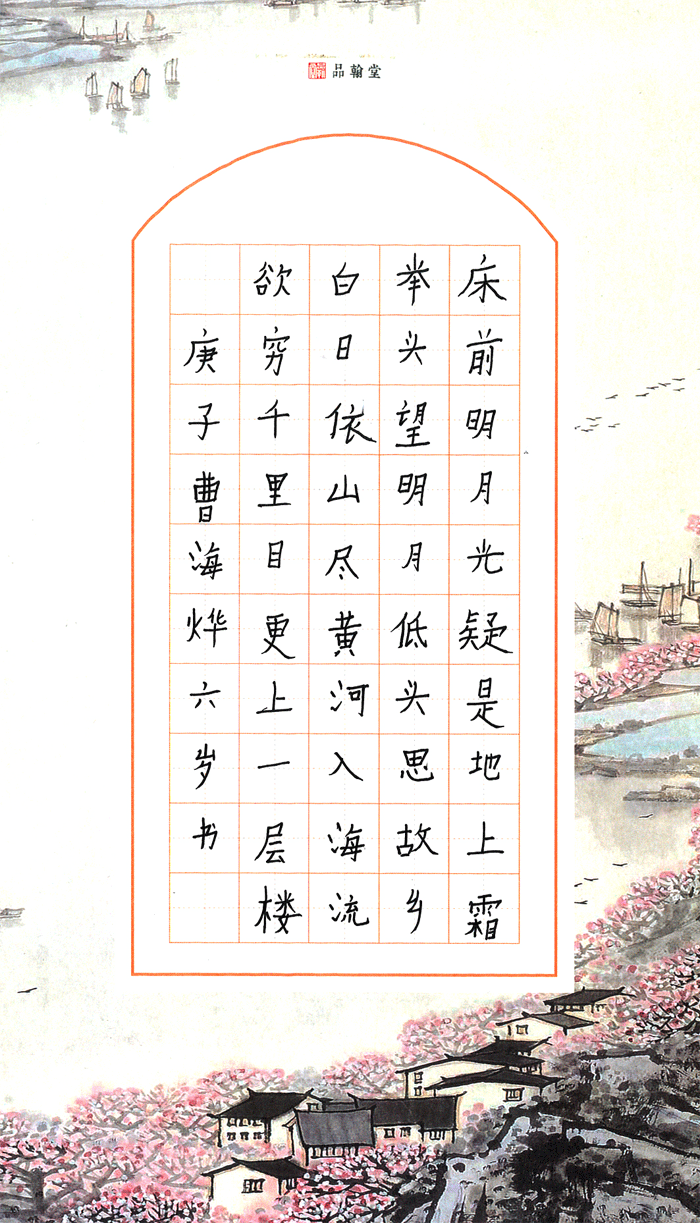 品翰堂
床前明月光疑是地上霜
举头望明月低头思故乡
白日依山尽黄河入海流
欲穷千里目更上一层楼
庚子曹海烨六岁书